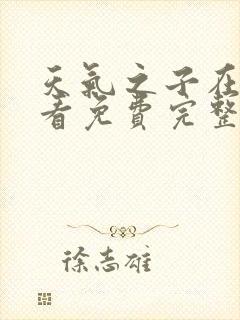 天氣之子在
看免費完整
徐志雄